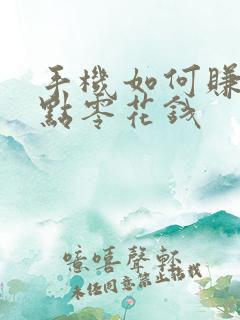 手機如何賺
點零花錢
噫嘻聲軒
未任同意禁止轉載